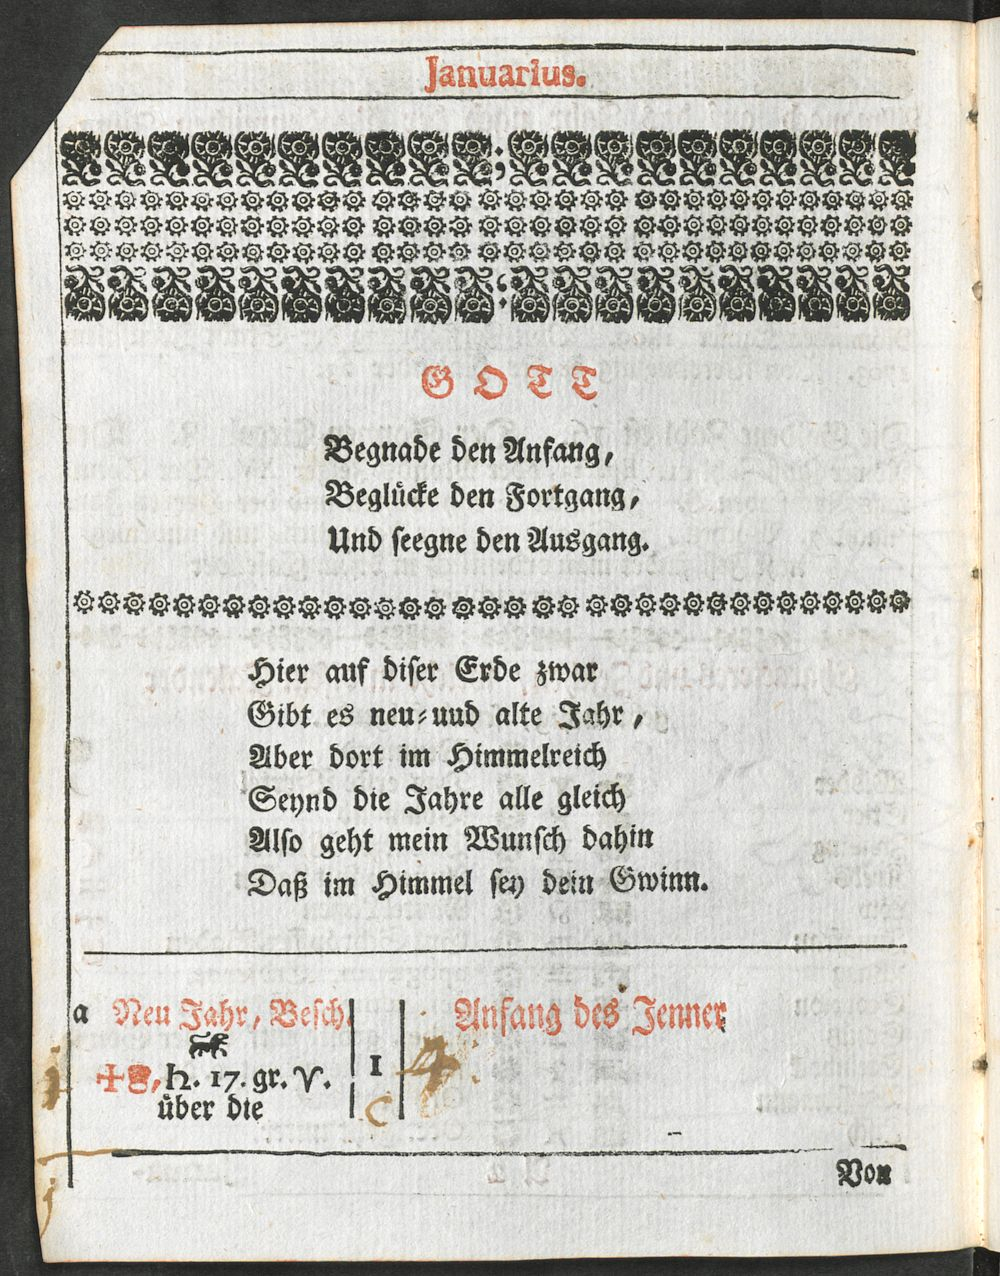 Januarius.
GOTT
Begnade den Anfang,
Beglücke den Fortgang,
Und seegne den Ausgang.
Hier auf diser Erde zwar
Gibt es neu-uud alte Jahr,
Aber dort im Himmelreich
Seynd die Jahre alle gleich
Also geht mein Wunsch dahin
Daß im Himmel sey dein Gwinn.
a Neu Jahr, Besch. 1 Anfang des Jenner
♄. 17. gr. ♈.
über die
Von